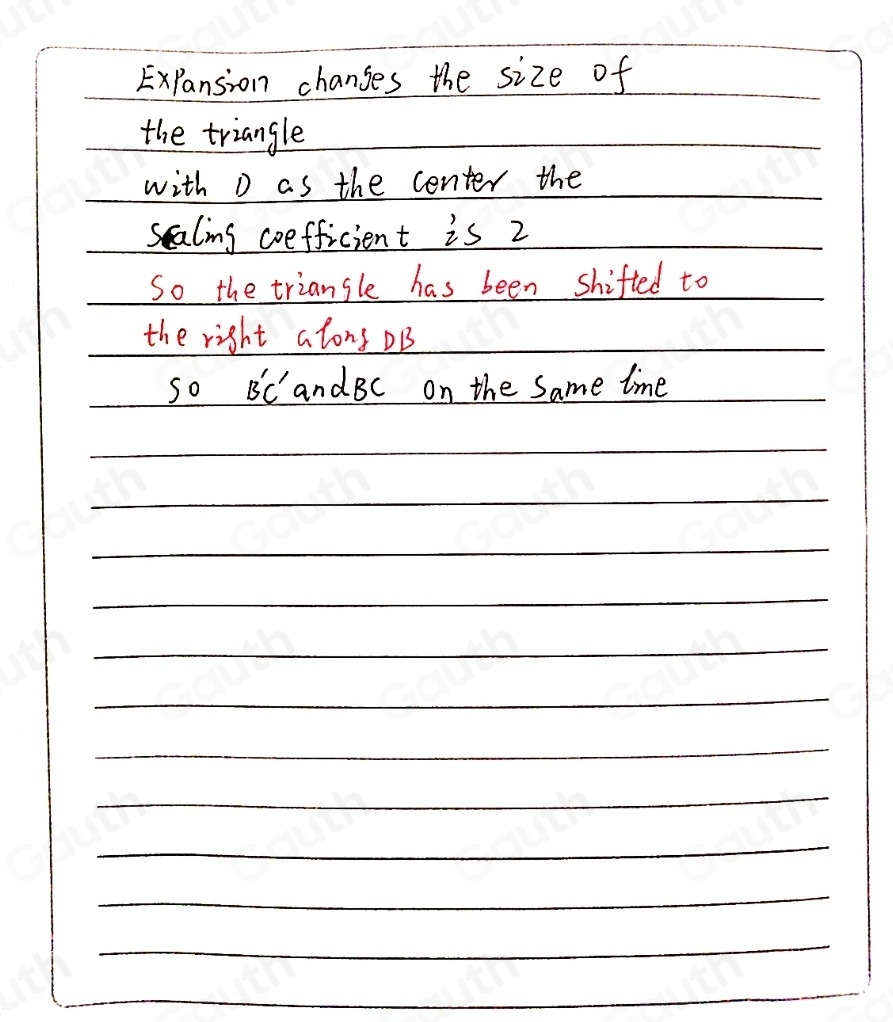 Expansion changes the size of
the triangle
with D as the center the
scaling coefficient is 2
So the triangle has been shifted to
the right along DB
so B'C' and BC on the same line